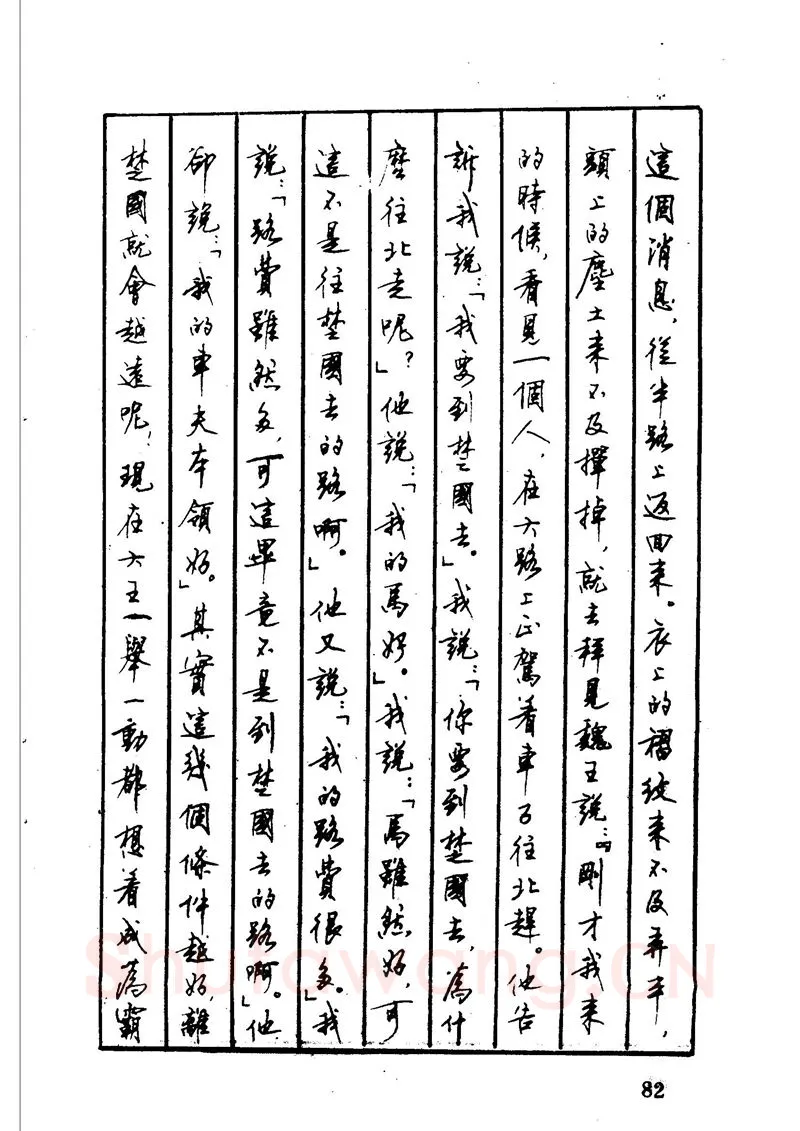 這個消息，從半路上返回來。衣上的褶紋來不及弄平，
頭上的塵土來不及撣掉，就去拜見魏王說：「剛才我來
的時候，看見一個人，在大路上正駕着車子往北趕。他告
訴我說：「我要到楚國去。」我說：「你要到楚國去，為什
麼往北走呢？」他說：「我的馬好。」我說：「馬雖然好，可
這不是往楚國去的路啊。」他又說：「我的路費很多。」我
說：「路費雖然多，可這畢竟不是到楚國去的路啊。」他
卻說：「我的車夫本領好。」其實這幾個條件越好，離
楚國就會越遠呢！現在大王一舉一動都想着成為霸
Shufawang.CN
82